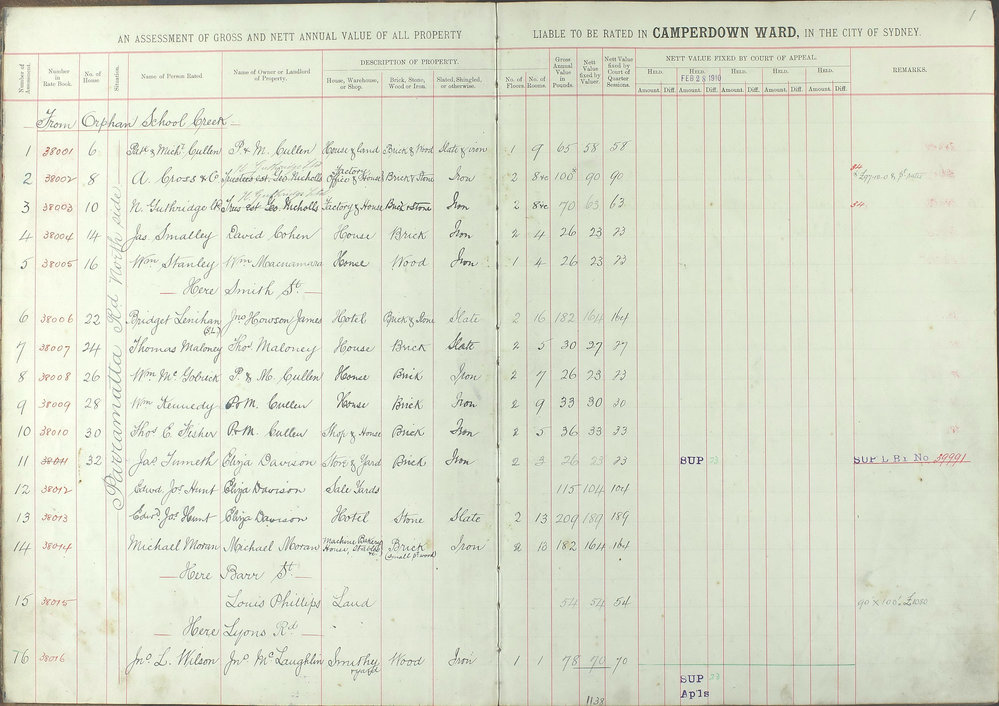 1
AN ASSESSMENT OF GROSS AND NETT ANNUAL VALUE OF ALL PROPERTY LIABLE TO BE RATED IN CAMPERDOWN WARD, IN THE CITY OF SYDNEY.
Number of Assessment. Number in Rate Book. No. of House Situation. Name of Person Rated Name of Owner or Landlord of Property. DESCRIPTION OF PROPERTY. House, Warehouse, or Shop. Brick, Stone, Wood or Iron. Slated, Shingled, or otherwise. No. of Floors. No. of Rooms. Gross Annual Value in Pounds. Nett Value fixed by Valuer. Nett Value fixed by Court of Quarter Sessions. NETT VALUE FIXED BY COURT OF APPEAL. REMARKS.
HELD. HELD. FEB 28 1910 HELD. HELD. HELD.
Amount. Diff. Amount. Diff. Amount. Diff. Amount. Diff. Amount. Diff.
From Orphan School Creek
Parramatta Rd North side
1 38001 6 Patk & Micht Cullen P. & M. Cullen House & land Brick & Wood Slate & iron 1 9 65 58 58
2 38002 8 A. Cross & Co Trustees est. Geo. Nicholls Factory Office & House Brick & Stone Iron 2 8 &c 100 90 90
3 38003 10 N. Guthridge Trus est Geo. Nicholls Factory & House Brick & Stone Iron 2 8 &c 70 63 63
4 38004 14 Jas. Smalley David Cohen House Brick Iron 2 4 26 23 23
5 38005 16 Wm Stanley Wm Macnamara House Wood Iron 1 4 26 23 23
— Here Smith St. —
6 38006 22 Bridget Lenihan (SL) Jno Howson James Hotel Brick & Stone Slate 2 16 182 164 164
7 38007 24 Thomas Maloney Thos Maloney House Brick Slate 2 5 30 27 27
8 38008 26 Wm Mc Gobrick P. & M. Cullen House Brick Iron 2 7 26 23 23
9 38009 28 Wm Kennedy P & M. Cullen House Brick Iron 2 9 33 30 30
10 38010 30 Thos E. Fisher P & M. Cullen Shop & House Brick Iron 2 5 36 33 33
11 38011 32 Jas Tumeth Eliza Davison Store & Yard Brick Iron 2 3 26 23 23 SUP 23 SUP L By No 39991
12 38012 Edwd. Jos Hunt Eliza Davison Sale Yards 115 104 104
13 38013 Edwd Jos Hunt Eliza Davison Hotel Stone Slate 2 13 209 189 189
14 38014 Michael Moran Michael Moran Machine Bakery House, Stables &c. Brick (small pt wood) Iron 2 13 182 164 164
— Here Barr St. —
15 38015 Louis Phillips Land 54 54 54 90 x 100' £1080
— Here Lyons Rd —
16 38016 Jno. L. Wilson Jno Mc Laughlin Smithy & yard Wood Iron 1 1 78 70 70
SUP 23
Apls
1138